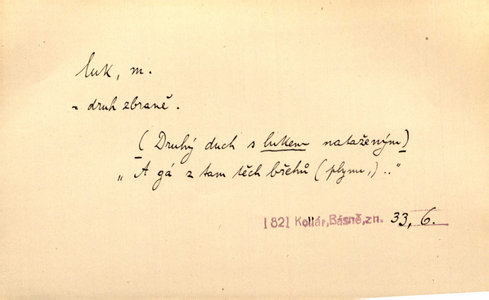 luk, m.
- druh zbraně.
(Druhý duch s lukem nataženým)
„A gá z tam těch břehů (plynu,) .."
1821 Kollár, Básně, zn. 33, 6.